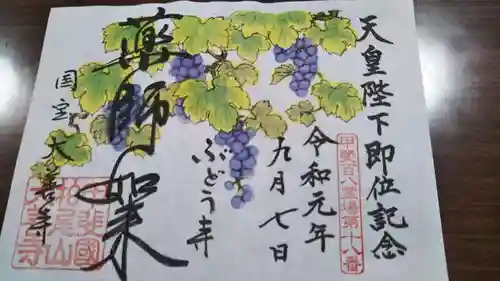 天皇陛下即位記念
甲斐百八霊場第十八番
令和元年
九月七日
ぶどう寺
薬師如来
国宝
大善寺
甲斐國
柏尾山
大善寺